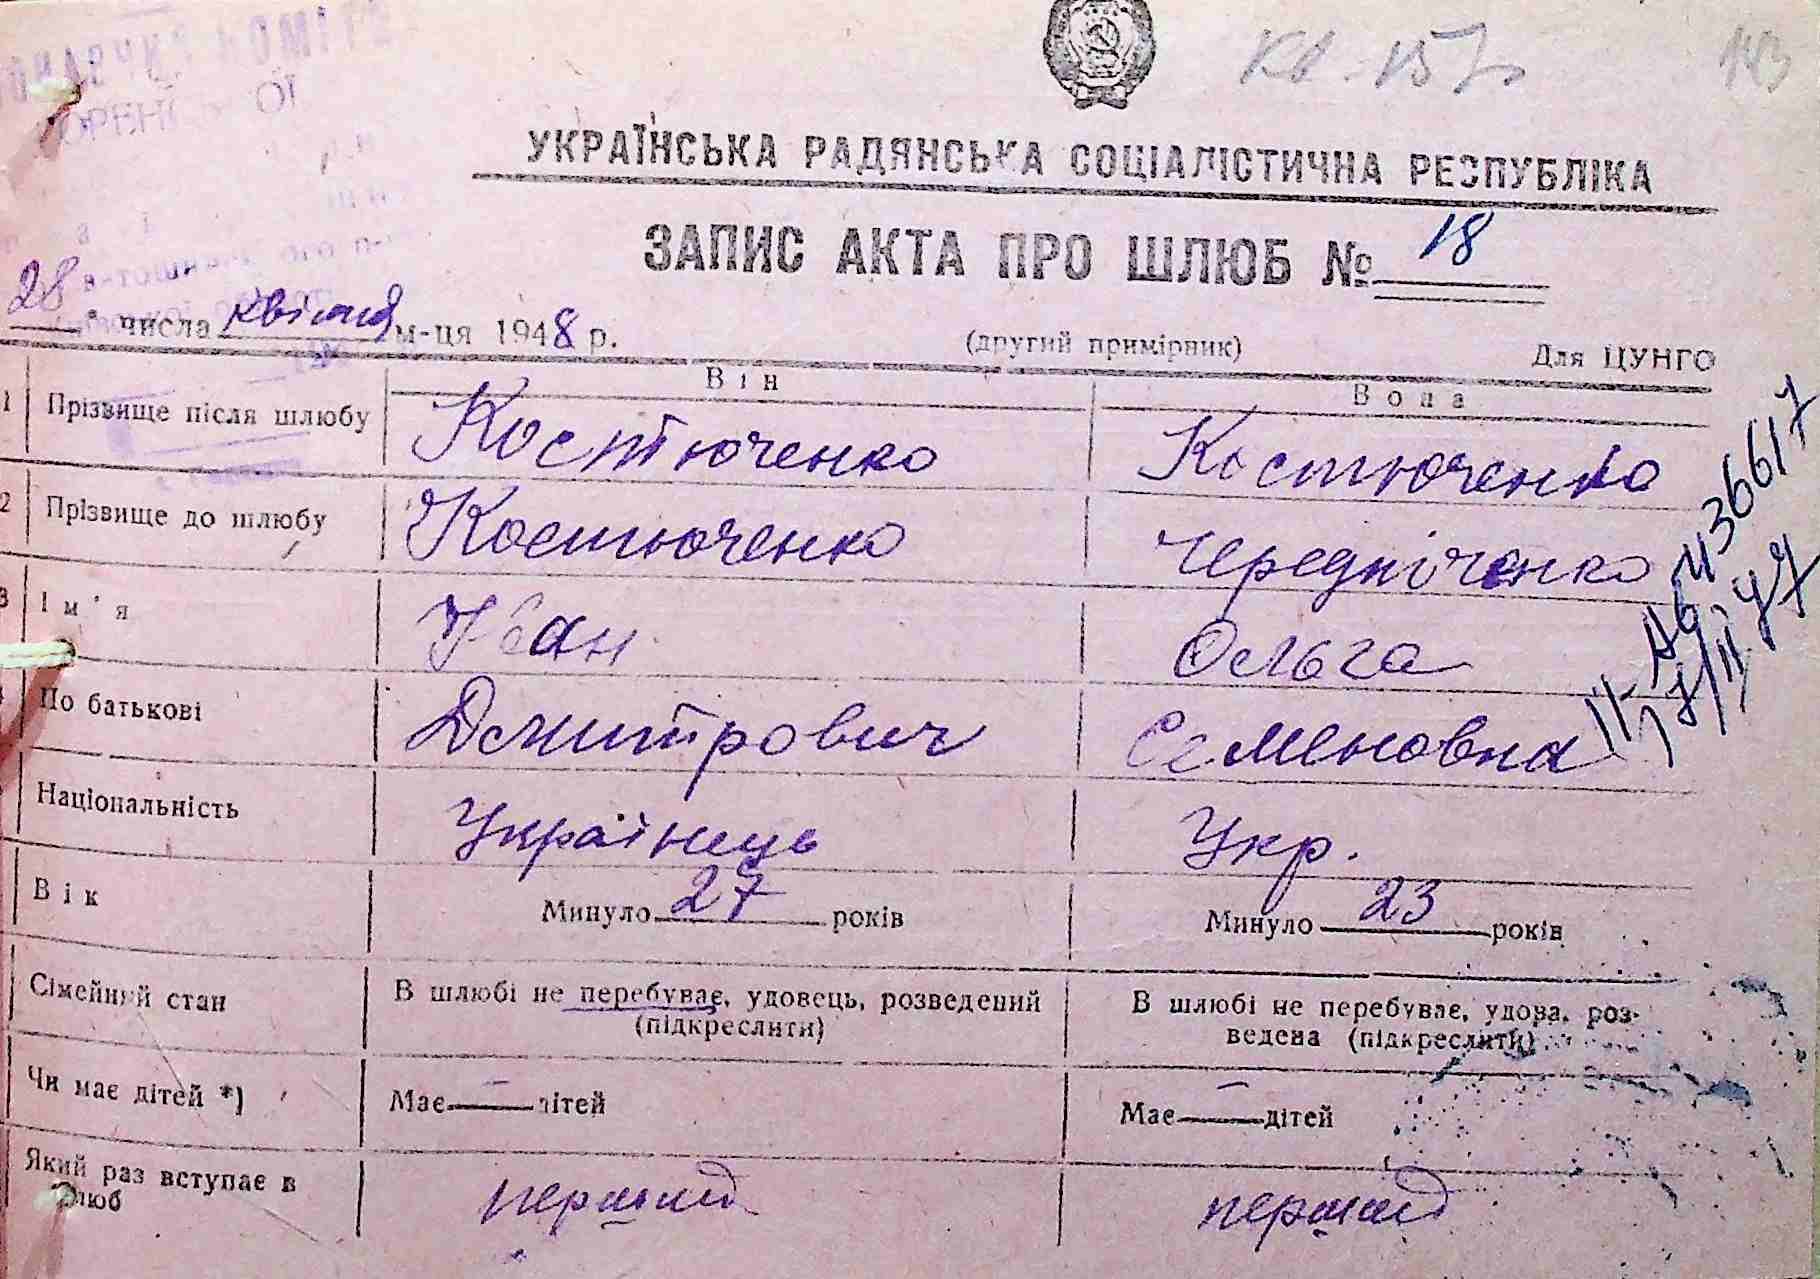 Кв. 157 143
УКРАЇНСЬКА РАДЯНСЬКА СОЦІАЛІСТИЧНА РЕСПУБЛІКА
ЗАПИС АКТА ПРО ШЛЮБ № 18
28 числа квітня м-ця 1948 р. (другий примірник) Для ЦУНГО
Він Вона
1 Прізвище після шлюбу Костюченко Костюченко
2 Прізвище до шлюбу Костюченко Чередніченко
3 Ім'я Іван Ольга
По батькові Дмитрович Семеновна
Національність Українець Укр.
Вік Минуло 27 років Минуло 23 років
Сімейний стан В шлюбі не перебуває, удовець, розведений (підкреслити) В шлюбі не перебуває, удова, роз-
ведена (підкреслити)
Чи має дітей *) Має — дітей Має — дітей
Який раз вступає в шлюб перший перший